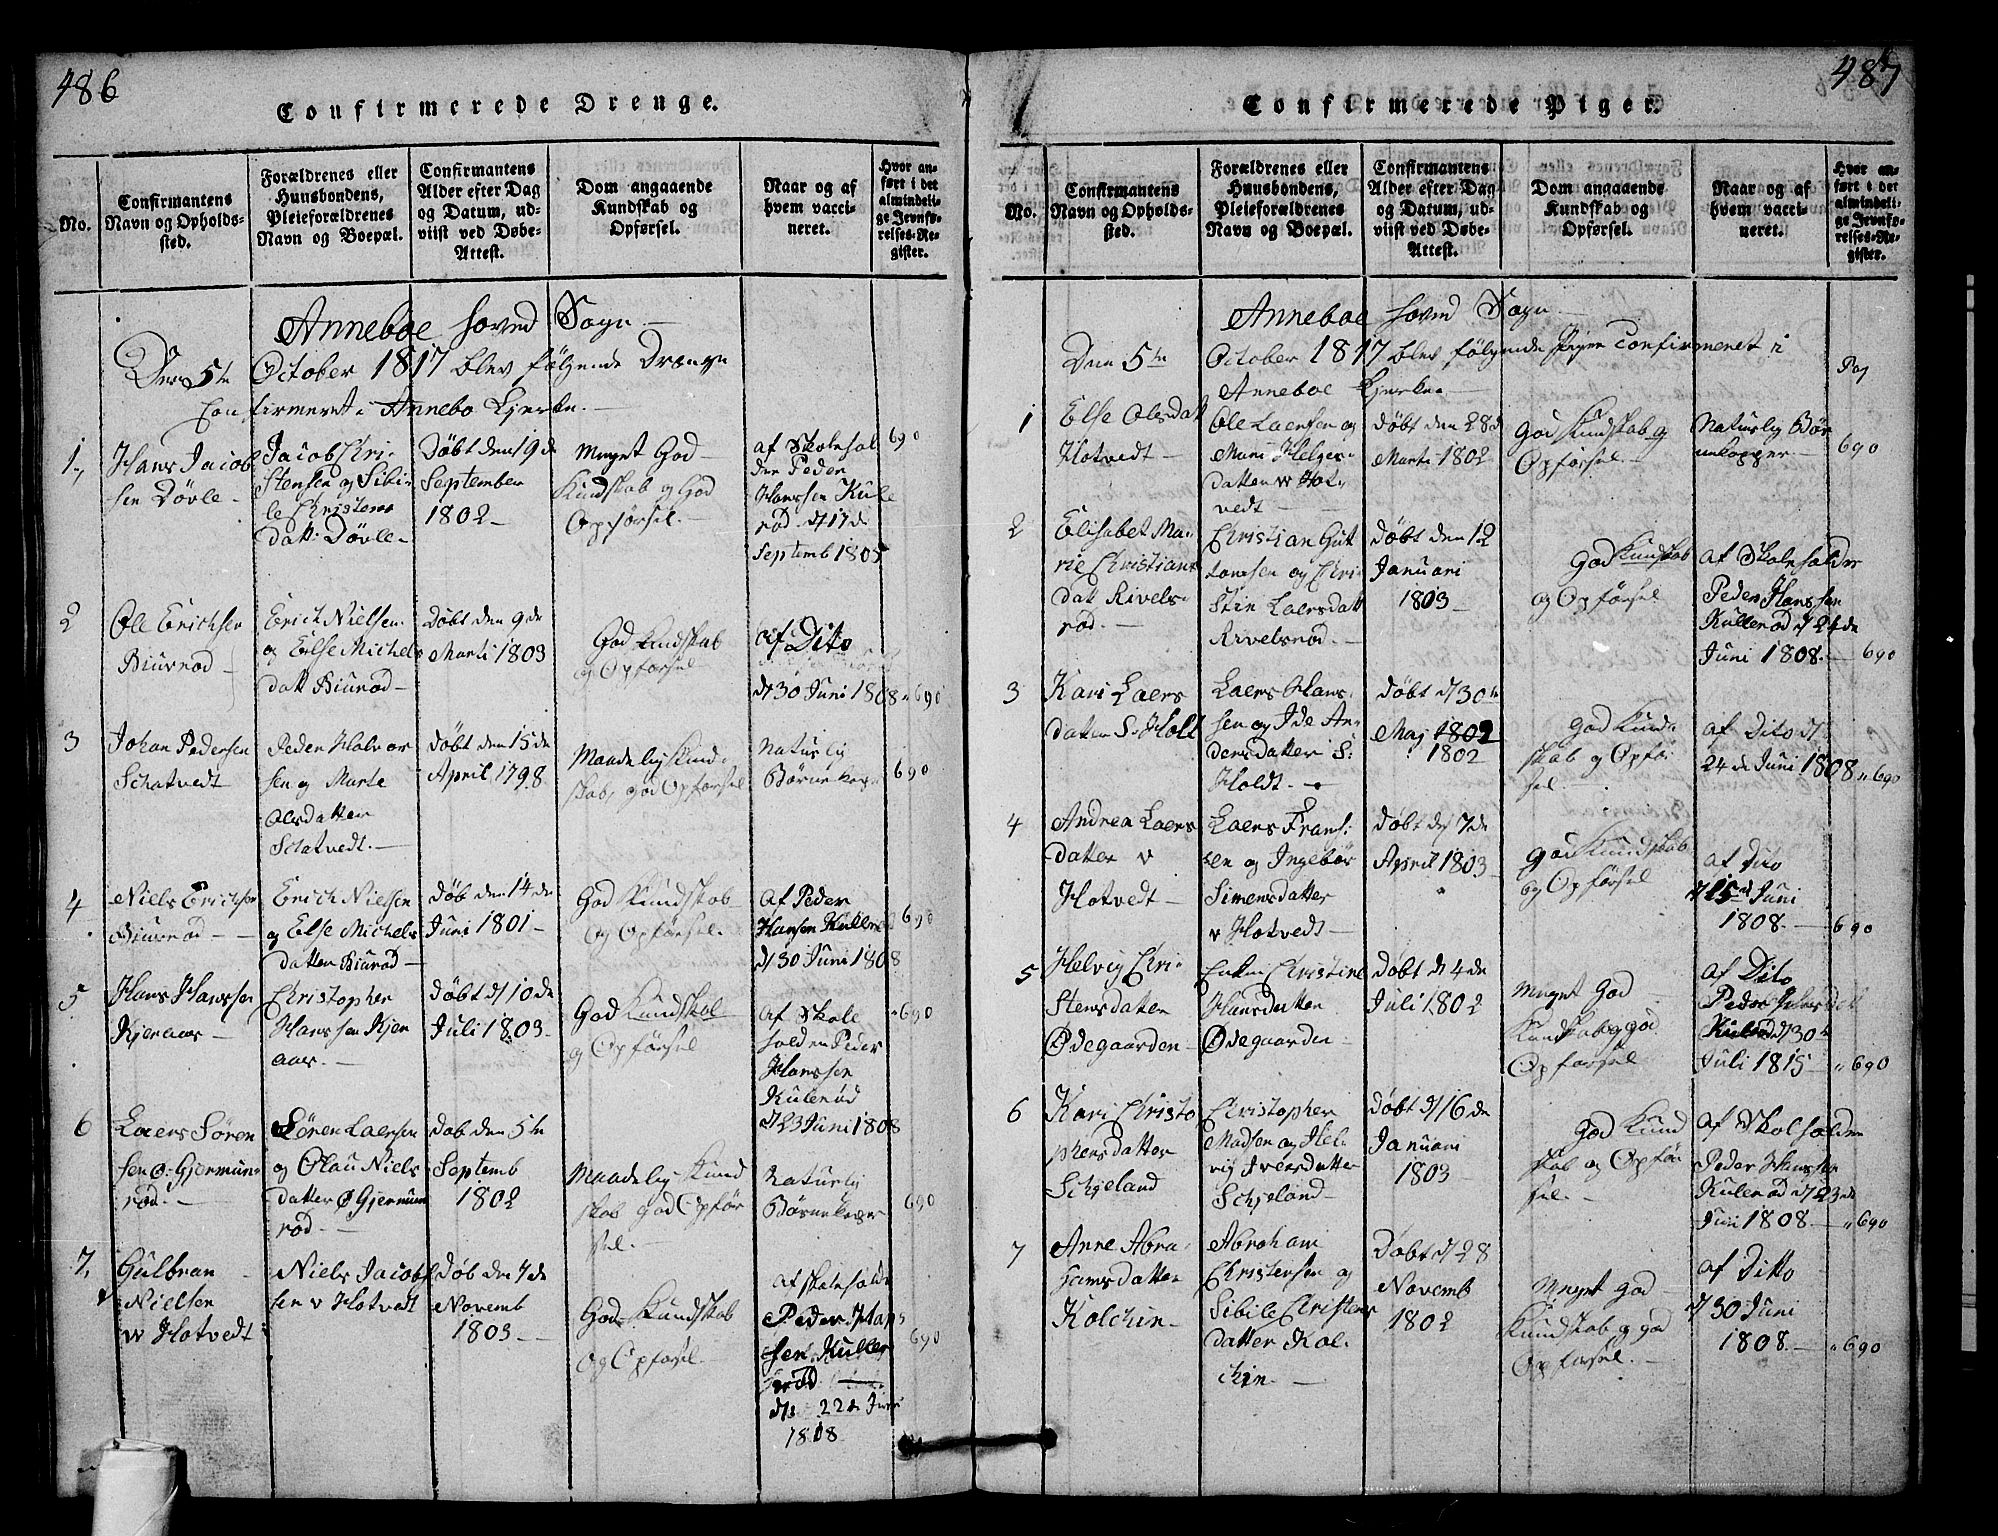 486
Confirmerede Drenge.
No.
Confirmantens
Navn og Opholds-
sted.
Forældrenes eller
Huusbondens,
Pleieforældrenes
Navn og Boepæl.
Confirmantens
Alder efter Dag
og Datum, ud-
viist ved Døbe-
Attest.
Dom angaaende
Kundskab og
Opførsel.
Naar og af
hvem vacci-
neret.
Hvor an-
ført i det
almindeli-
ge Jevnfø-
relses-Re-
gister.
Anneboe Hoved Sogn
Den 5te October 1817 blev følgende Drænge
Confirmeret i Annebo Kjerke.
1.
Hans Jacob
sen Døvle
Jacob Chri-
stensen og Sibi-
le Christens
datt: Døvle
Døbt den 19de
September
1802
Meget God
Kundskab og God
Opførsel.
af Skolehol
der Peder
Hanssen Kule
rød d/17de
Septemb 1805
690
2
Ole Erichsen
Biurrød
Erich Nielsen
og Else Michels
datt Biurød
Døbt den 9de
Marti 1803
God Kundskab
og Opførsel
af Dito
d/30 Juni 1808
690
3
Johan Pedersen
Schatvedt
Peder Halvor
sen og Marte
Olsdatter
Schatvedt.
Døbt den 15de
April 1798
Maadelig Kund-
skab, god Opførsel
Naturlig
Børnekopper
690
4
Niels Erichsen
Biurrød
Erich Nielsen
og Else Michels
datter Biurød
Døb den 14de
Juni 1801
God Kundskab
og Opførsel.
af Peder
Hansen Kullerød
d/30 Juni 1808
690
5
Hans Hanssen
Kjenaas
Christopher
Hanssen Kjen
aas
Døbt d/10de
Juli 1803
God Kundskab
og Opførsel
af Skole
holden Peder
Hanssen
Kulerød
d/23 Juni 1808
690
6
Laers Søren
sen Ø: Gjermun-
rød.
Søren Laersen
og Olau Niels
datter Ø Gjermun
rød.
Døb den 5te
Septemb
1802
Maadelig Kund
skab god Opfør
sel.
Naturlig
Børnekoper
690
7.
Gulbran
Nielsen
W Hotvedt
Niels Jacob
sen v Hotvedt
Døb den 7de
Novemb
1803
God Kundskab
og Opførsel
af skoleholde
Peder Han
sen Kuller
rød
22de Juni
1808
690
487
Confirmerede Piger.
No.
Confirmantens
Navn og Opholds-
sted.
Forældrenes eller
Huusbondens,
Pleieforældrenes
Navn og Boepæl.
Confirmantens
Alder efter Dag
og Datum, ud-
viist ved Døbe-
Attest.
Dom angaaende
Kundskab og
Opførsel.
Naar og af
hvem vacci-
neret.
Hvor an-
ført i det
almindeli-
ge Jevnfø-
relses-Re-
gister.
Anneboe Hoved Sogn
Den 5te October 1817 blev følgende Piger Confirmeret i
Anneboe Kjerke
Pag
1
Else Olesdatt
Hotvedt
Ole Laersen og
Mari Helges-
datter W Hot-
vedt
Døbt den 28d
Marti 1802
God Kundskab og
Opførsel.
Naturlig Bør
nekopper
690
2
Elisabet Ma-
rie Christians
datt Rivels-
rød.
Christian Gut
tormsen og Chri-
stin Laersdatt
Rivelsrød.
Døbt den 12
Januari
1803
God Kundskab
og Opførsel
af Skoleholder
Peder Hanssen
Kullerød d/24de
Juni 1808.
690
3
Kari Laers
datter S. Holt
Laers Hans-
sen og Ide An-
dersdatter S:
Holdt.
Døbt d/30te
Maj 1802
1802
God Kund-
skab og Opfør
sel.
af Dito d/
24de Juni 1808
690
4
Andrea Laers
datter v
Hotvedt
Laers Frans-
sen og Ingebor
Simensdatter
v Hotvedt
Døbt d/7de
April 1803
God Kundskab
og Opførsel
af Dito
d/25d Juni
1808.
690
5
Helvig Chri-
stensdatter
Ødegaarden
Enken Christine
Hansdatter
Ødegaarden
Døbt d 4de
Juli 1802
Meget God
Kundskab og god
Opførsel
af Dito
Kulerød d/30te
Juli 1815
690
6
Kari Christo
phersdatter
Schjeland
Christopher
Madsen og Hel-
vig Iversdatter
Schjeland
Døbt d/16de
Januari
1803
God Kund
skab og Opfør
sel.
af Skolholden
Peder Hanssen
Kulerød d/23de
Juni 1808.
690
7
Anne Abra-
hamsdatter
Kolchin
Abraham
Christensen og
Sibile Christens
datter Kol
chin.
Døbt d/28
Novemb
1802
Meget God
Kundskab og god
Opførsel.
af Ditto
d/30 Juni
1808.
690